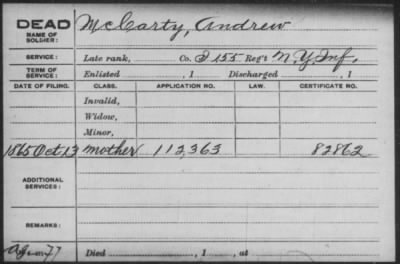 DEAD McCarty, Andrew
NAME OF SOLDIER:
SERVICE: Late rank, Co. I 155 Reg't N.Y. Inf.
TERM OF SERVICE: Enlisted , 1 Discharged , 1
DATE OF FILING. CLASS. APPLICATION NO. LAW. CERTIFICATE NO.
Invalid,
Widow,
Minor,
1865 Oct 13 mother 112,363 82862
ADDITIONAL SERVICES:
REMARKS:
77 Died , 1 , at